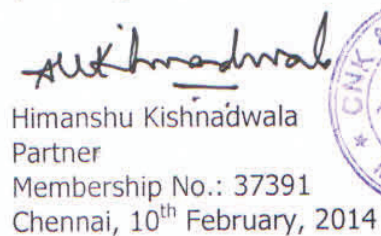 Himanshu Kishnadwala
Partner
Membership No.: 37391
Chennai, 10th February, 2014
CNK &